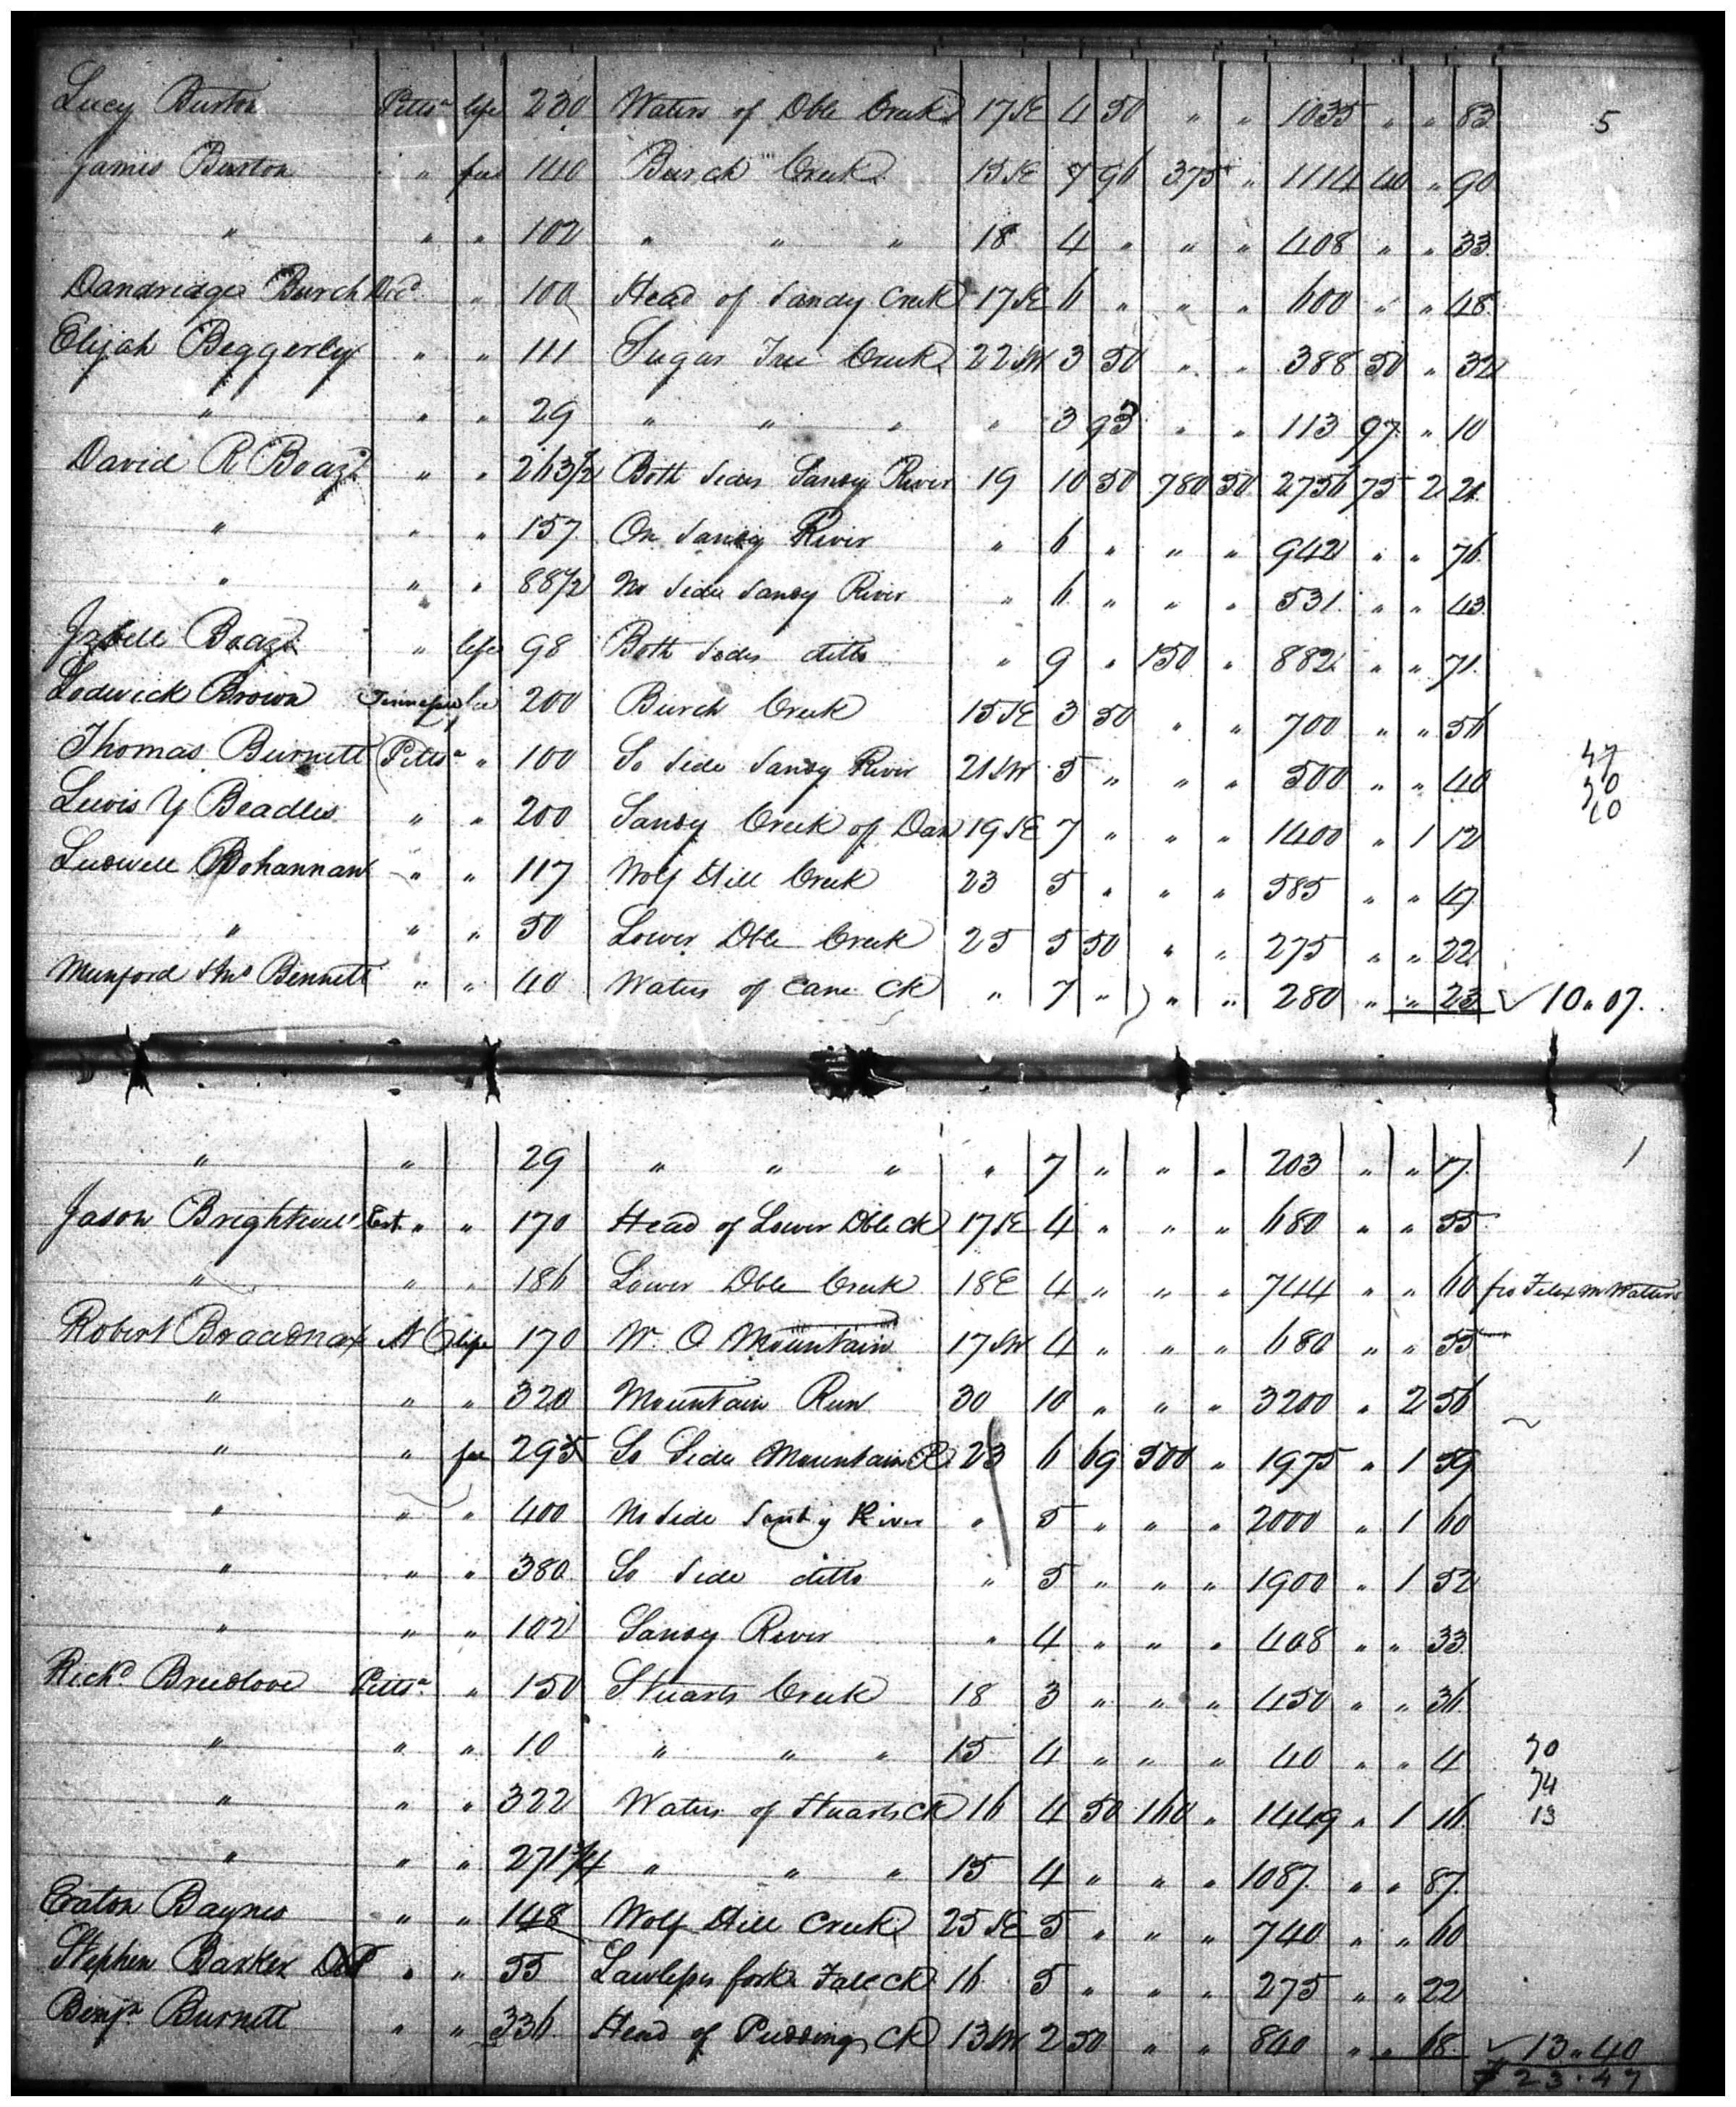 Lucy Burton Pittsa life 230 Waters of Dble Creek 17 SE 4 50 " " 1035 " " 83 5
James Burton " fee 140 Burch Creek 15 SE 7 96 375 " 1114 40 " 90
" " " 102 " " " 18 4 " " " 408 " " 33
Dandridge Burch Decd " 100 Head of Sandy Creek 17 SE 6 " " " 600 " " 48
Elijah Beggerly " " 111 Sugar Tree Creek 22 SW 3 50 " " 388 50 " 32
" " " 29 " " " " 3 93 " " 113 97 " 10
David R Boaz " " 263 1/2 Both Sides Sandy River 19 10 50 780 50 2756 75 2 21
" " " 157 On Sandy River " 6 " " " 942 " " 76
" " " 88 1/2 No Side Sandy River " 6 " " " 531 " " 43
Izbell Boaz " life 98 Both Sides ditto " 9 " 150 " 882 " " 71
Lodwick Brown fee 200 Burch Creek 15 SE 3 50 " " 700 " " 56
Thomas Burnett Pittsa " 100 So Side Sandy River 21 SW 5 " " " 500 " " 40 47
Lewis Y Beadles " " 200 Sandy Creek of Dan 19 SE 7 " " " 1400 " 1 12
Ludwell Bohannan " " 117 Wolf Hill Creek 23 5 " " " 585 " " 47
" " " 50 Lower Dble Creek 25 5 50 " " 275 " " 22
Munford Bennett " " 40 Waters of Cane Ck " 7 " " " 280 " " 23 ✓ 10 " 07
" " 29 " " " " 7 " " " 203 " " 17 1
Jason Brightwell Est " " 170 Head of Lower Dble Ck 17 SE 4 " " " 680 " " 55
" " " 186 Lower Dble Creek 18 E 4 " " " 744 " " 60 fro Felex M Waters
Robert Broadnax N C life 170 W. O Mountain 17 SW 4 " " " 680 " " 55
" " " 320 Mountain Run 30 10 " " " 3200 " 2 56
" " fee 295 So Side Mountain R 23 6 69 500 " 1975 " 1 59
" " " 400 No Side Sandy River " 5 " " " 2000 " 1 60
" " " 380 So Side ditto " 5 " " " 1900 " 1 52
" " " 102 Sandy River " 4 " " " 408 " " 33
Richd Breedlove Pittsa " 150 Stuarts Creek 18 3 " " " 450 " " 36
" " " 10 " " " 15 4 " " " 40 " " 4
" " " 322 Waters of Stuarts Ck 16 4 50 160 " 1449 " 1 16 13
" " " 271 3/4 " " " 15 4 " " " 1087 " " 87
Eraton Baynes " " 148 Wolf Hill Creek 25 SE 5 " " " 740 " " 60
Stephen Barker " " 55 Lawless fork Fall Ck 16 5 " " " 275 " " 22
Benja Burnett " " 336 Head of Pudding Ck 13 SW 2 50 " " 840 " " 68 ✓ 13 " 40
$ 23 . 47